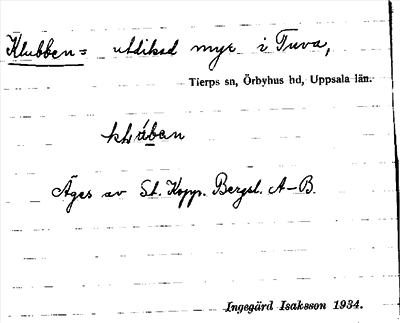 Klubben = utdikad myr i Tuva,
Tierps sn, Örbyhus hd, Uppsala län.
Äges av St. Kopp. Bergsl. A-B.
Ingegärd Isaksson 1934.